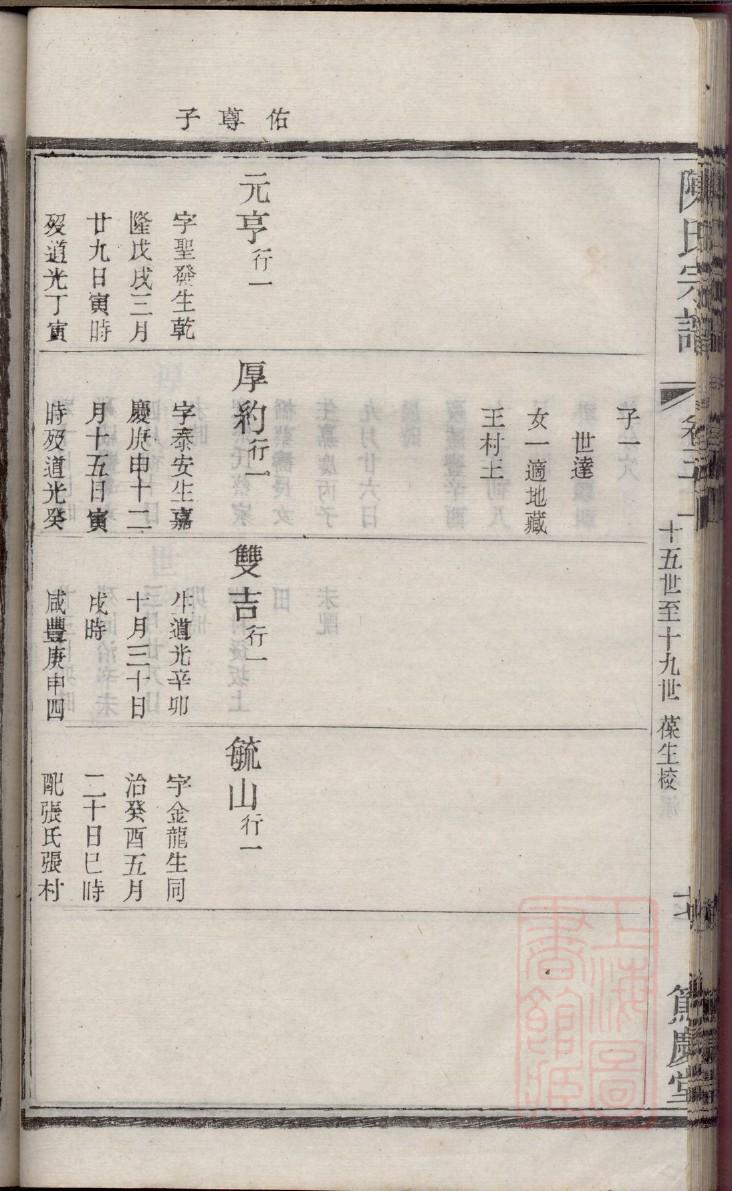 陳氏宗譜
卷三
十五世至十九世 葆生校
篤慶堂
佑尊子
子一
世達
女一適地藏
王村王
元亨行一
字聖發生乾
隆戊戌三月
廿九日寅時
歿道光丁寅
厚約行一
字泰安生嘉
慶庚申十二
月十五日寅
時歿道光癸
雙吉行一
生道光辛卯
十月三十日
戌時
咸豐庚申四
毓山行一
字金龍生同
治癸酉五月
二十日巳時
配張氏張村
上海圖
書館